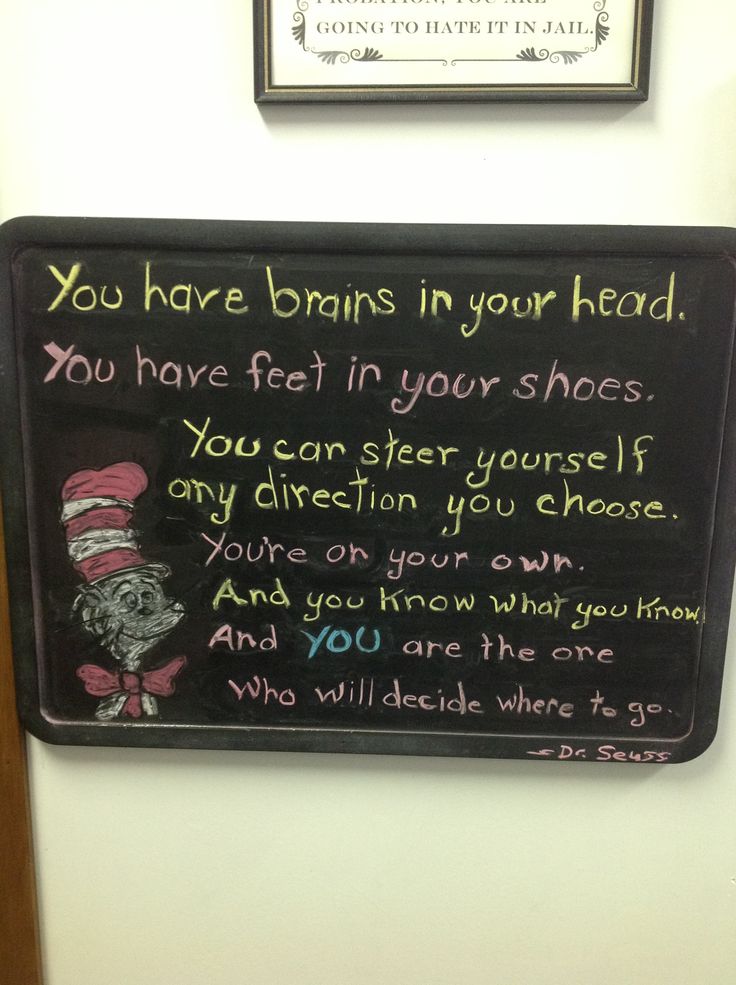 PROBATION, YOU ARE
GOING TO HATE IT IN JAIL.
You have brains in your head.
You have feet in your shoes.
You can steer yourself
any direction you choose.
You're on your own.
And you know what you know.
And YOU are the one
Who will decide where to go.
- Dr. Seuss